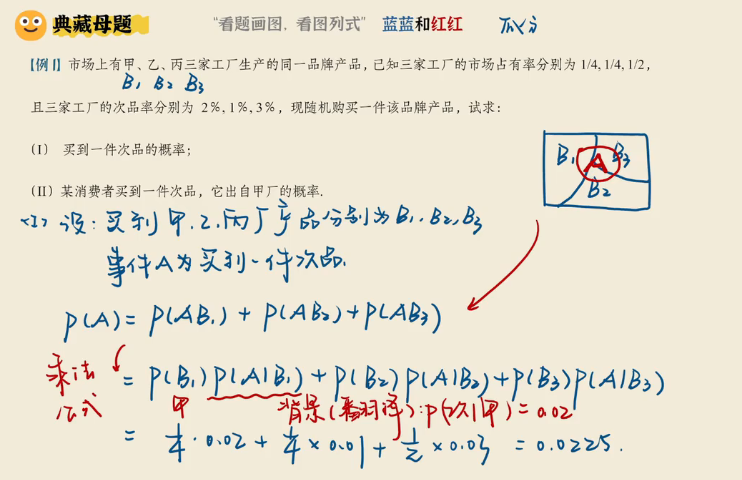 典藏母题 “看题画图，看图列式” 蓝蓝和红红
【例1】市场上有甲、乙、丙三家工厂生产的同一品牌产品，已知三家工厂的市场占有率分别为 1/4, 1/4, 1/2，
B₁ B₂ B₃
且三家工厂的次品率分别为 2%, 1%, 3%，现随机购买一件该品牌产品，试求：
（I） 买到一件次品的概率；
B₁ A B₃
B₂
（II）某消费者买到一件次品，它出自甲厂的概率.
<1> 设：买到甲.乙.丙厂产品分别为B₁.B₂,B₃
事件A为买到一件次品.
P(A)= P(AB₁) + P(AB₂)+P(AB₃)
乘法公式
= P(B₁)P(A|B₁)+P(B₂)P(A|B₂)+P(B₃)P(A|B₃)
甲 背景(看翻译):P(次|甲)=0.02
= 1/4·0.02 + 1/4×0.01 + 1/2×0.03 = 0.0225.